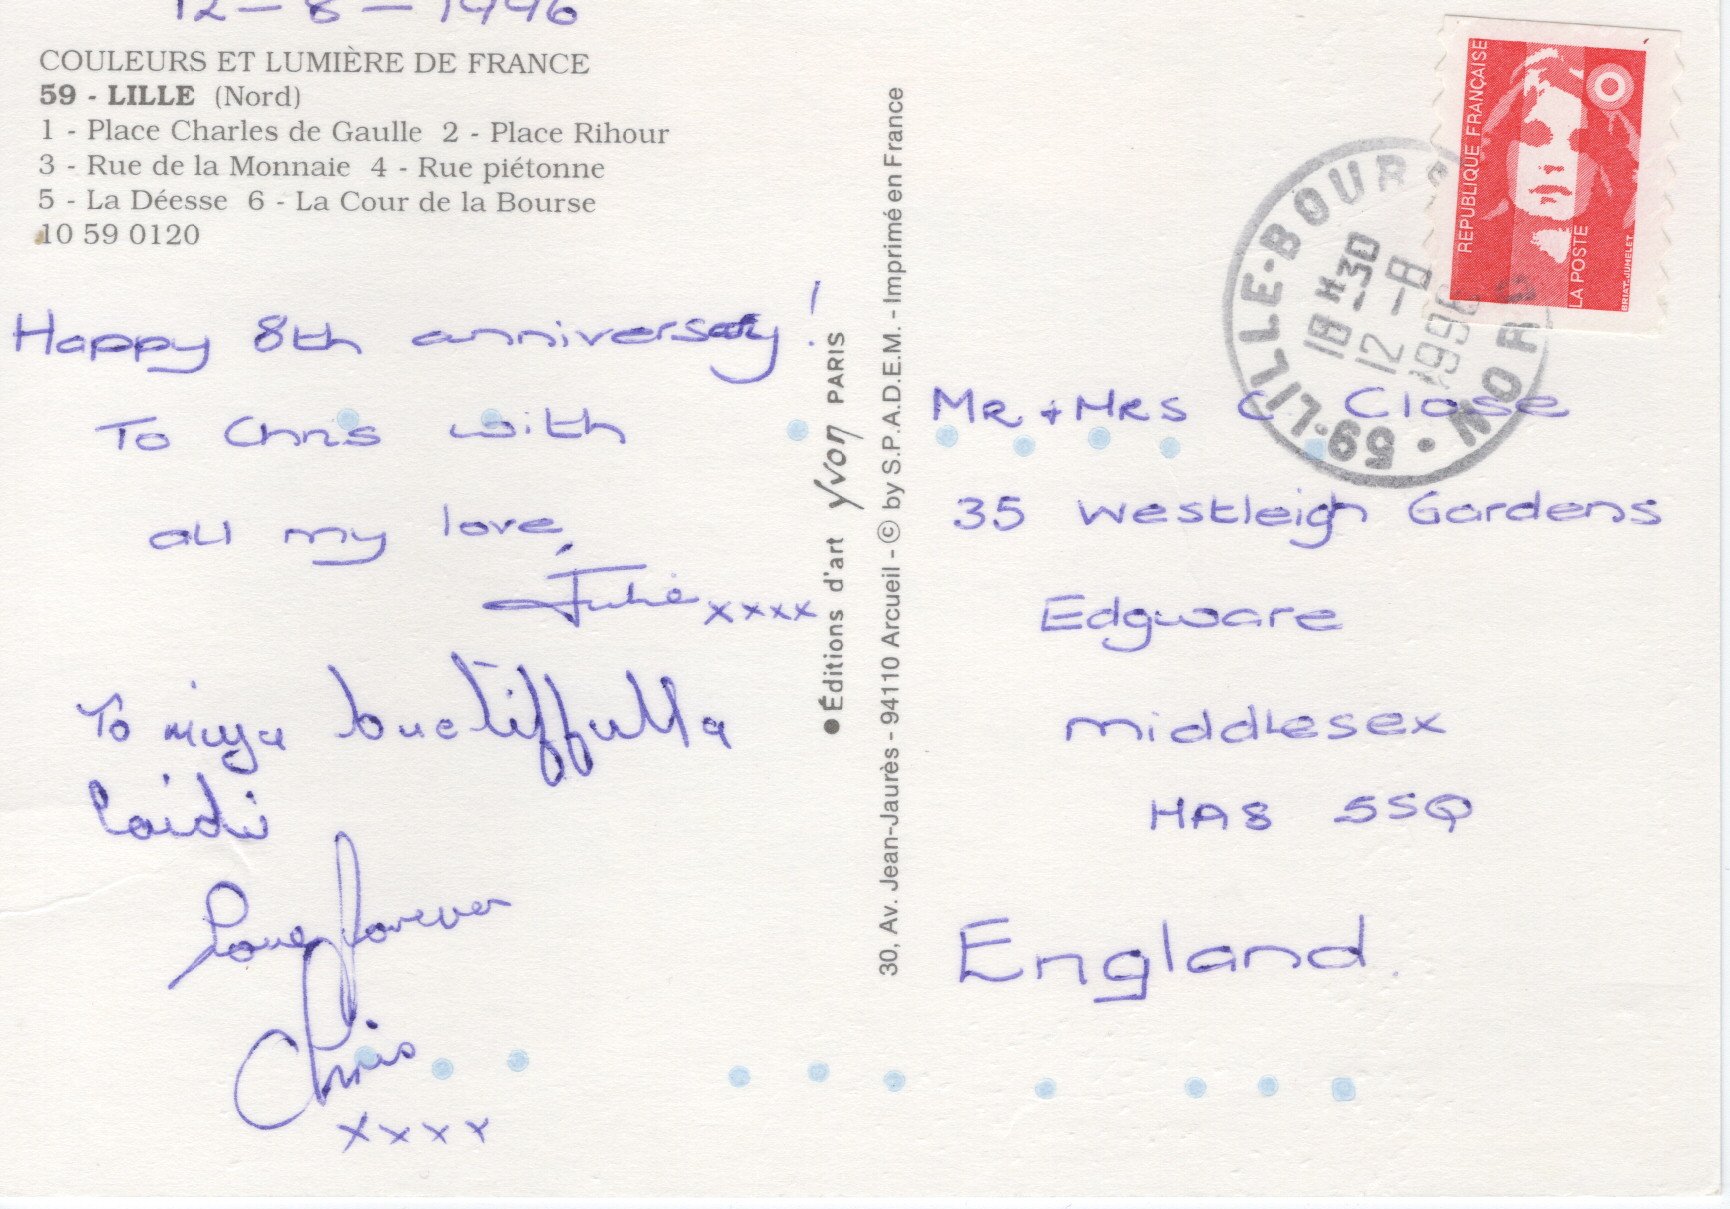 12-8-1996
COULEURS ET LUMIÈRE DE FRANCE
59 - LILLE (Nord)
1 - Place Charles de Gaulle 2 - Place Rihour
3 - Rue de la Monnaie 4 - Rue piétonne
5 - La Déesse 6 - La Cour de la Bourse
10 59 0120
Happy 8th anniversary!
To Chris with
all my love,
Julie xxxx
To miya buetiffulla
Laidi
Love forever
Chris
xxxx
●Éditions d'art yvon PARIS
30, Av. Jean-Jaurès - 94110 Arcueil - © by S.P.A.D.E.M. - Imprimé en France
REPUBLIQUE FRANÇAISE
LA POSTE
BRIAT-JUMELET
59·LILLE-BOUR
NORD
18H30
12-8
1996
Mr + Mrs C. Close
35 Westleigh Gardens
Edgware
Middlesex
HA8 5SQ
England.